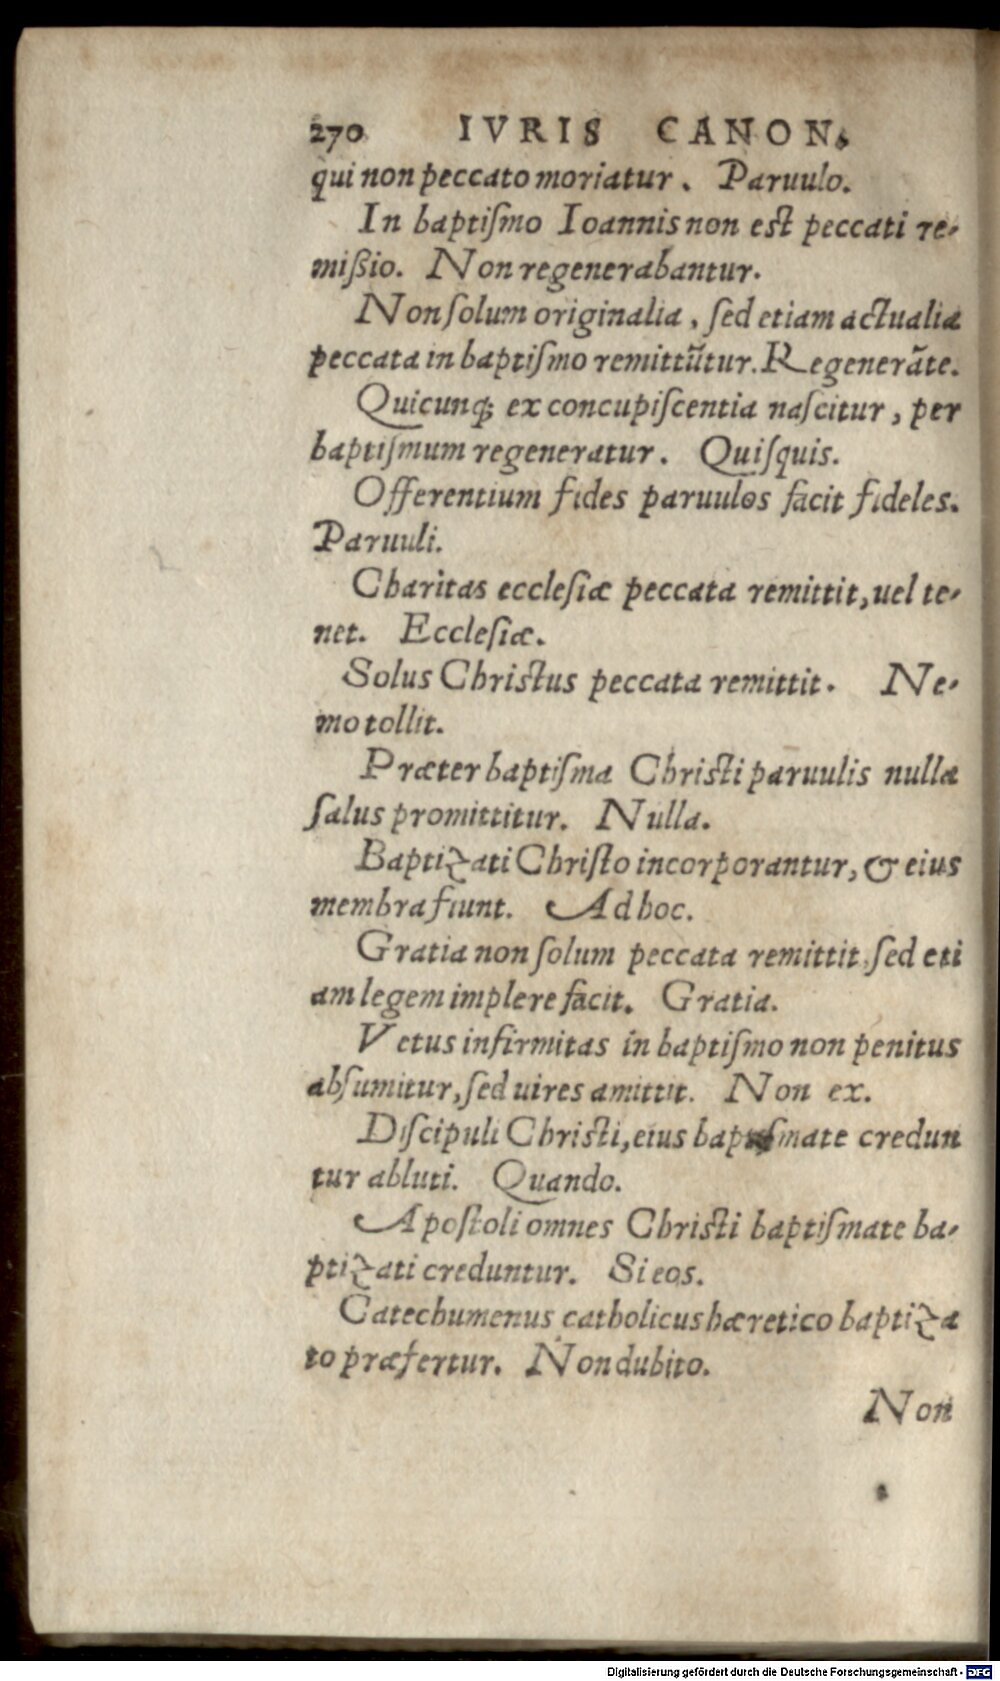 270 IVRIS CANON.
qui non peccato moriatur. Paruulo.
In baptiſmo Ioannis non est peccati re-
mißio. Non regenerabantur.
Non ſolum originalia, ſed etiam actualia
peccata in baptiſmo remittūtur. Regenerāte.
Quicunq; ex concupiſcentia naſcitur, per
baptiſmum regeneratur. Quiſquis.
Offerentium fides paruulos facit fideles.
Paruuli.
Charitas eccleſiæ peccata remittit, uel te-
net. Eccleſiæ.
Solus Christus peccata remittit. Ne-
mo tollit.
Præter baptiſma Christi paruulis nulla
ſalus promittitur. Nulla.
Baptizati Chriſto incorporantur, & eius
membra fiunt. Ad hoc.
Gratia non ſolum peccata remittit, ſed eti
am legem implere facit. Gratia.
Vetus infirmitas in baptiſmo non penitus
abſumitur, ſed uires amittit. Non ex.
Diſcipuli Christi, eius baptiſmate credun
tur abluti. Quando.
Apoſtoli omnes Christi baptiſmate ba-
ptizati creduntur. Si eos.
Catechumenus catholicus hæretico baptiza
to præfertur. Non dubito.
Non
Digitalisierung gefördert durch die Deutsche Forschungsgemeinschaft - DFG